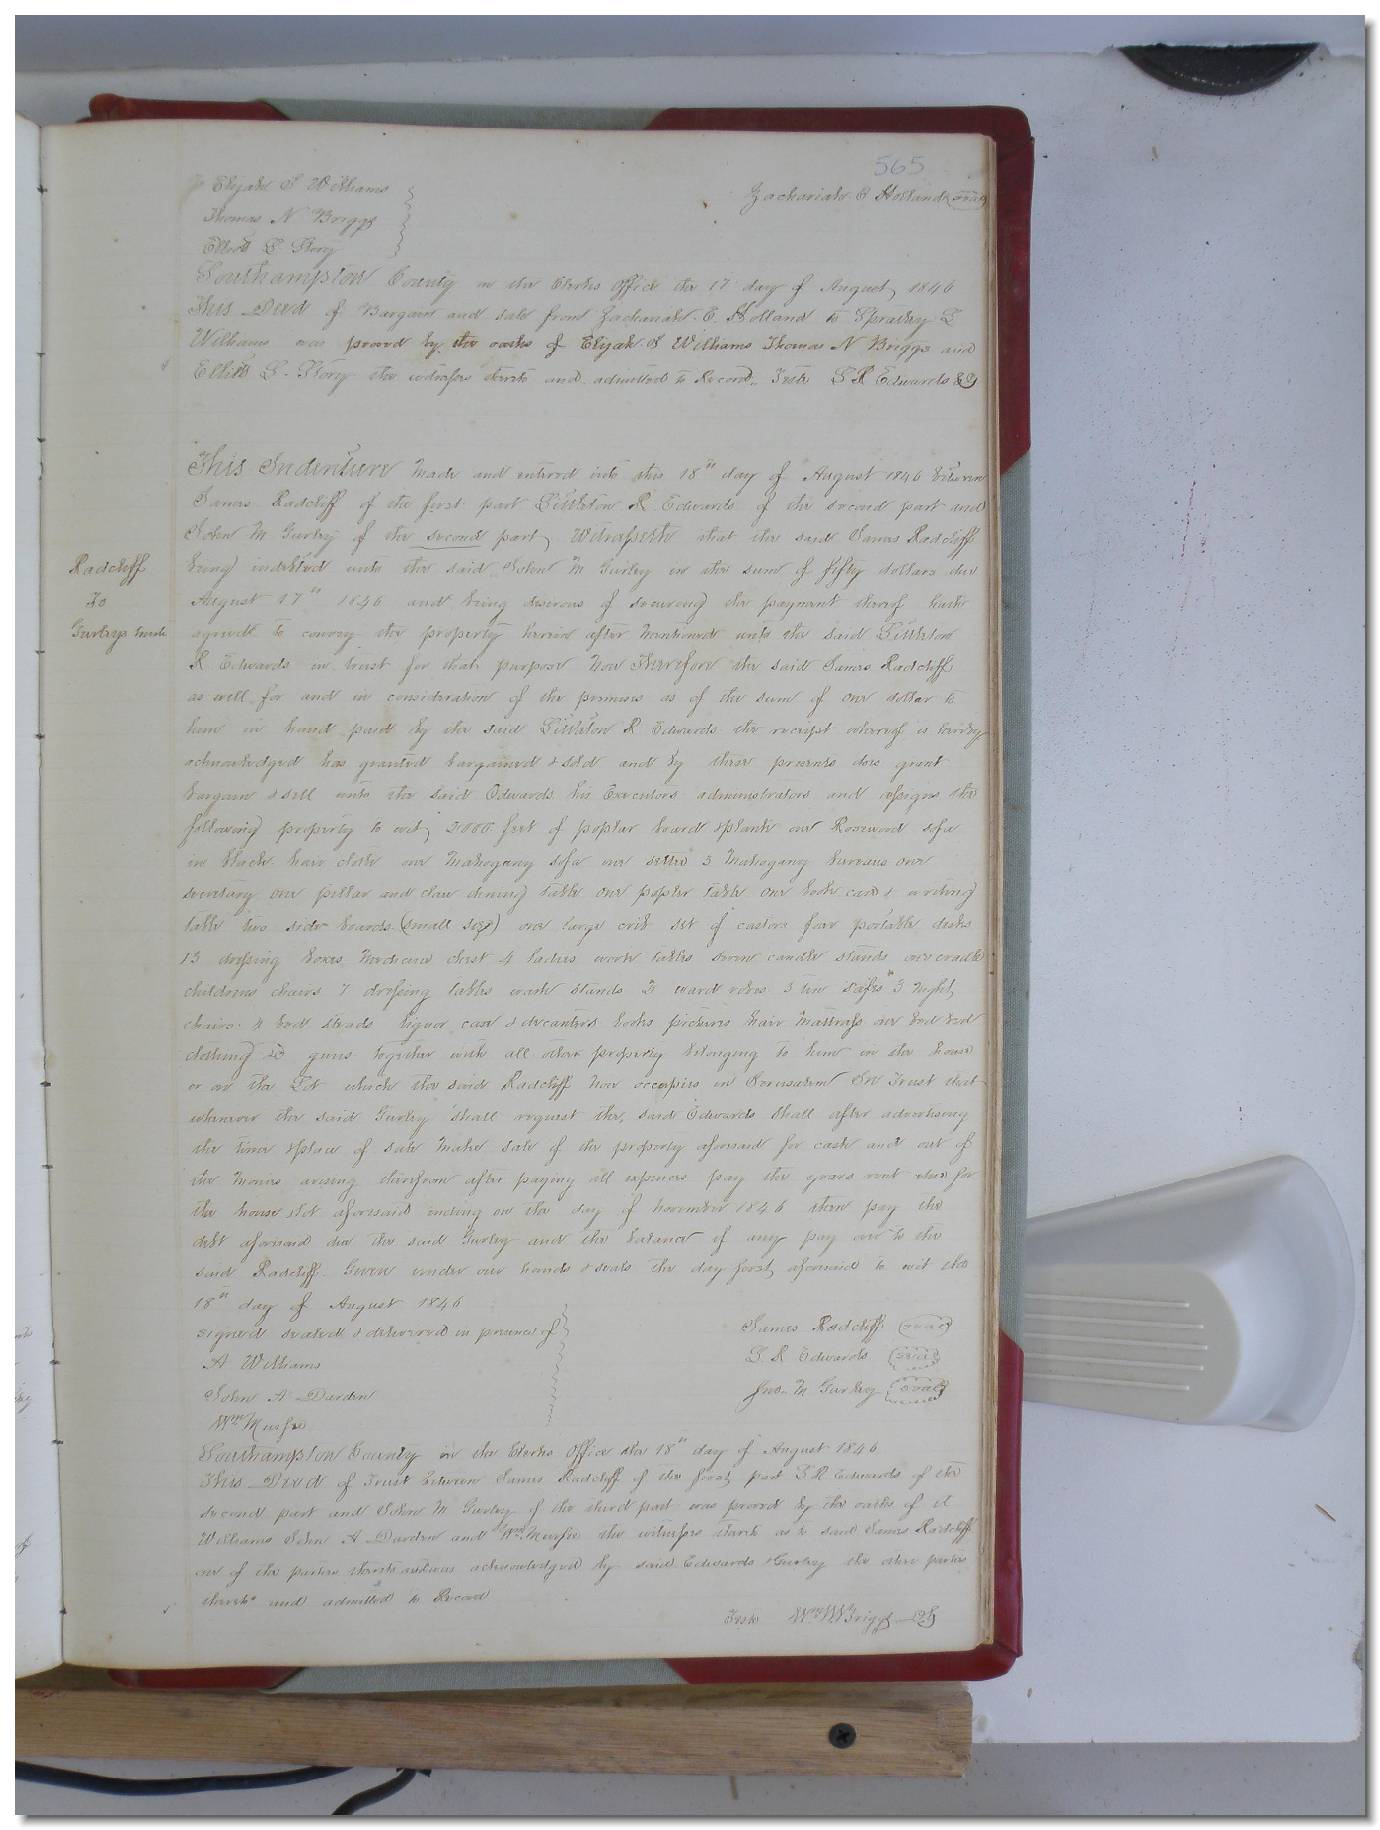 565
Elijah J Williams Zachariah E Holland seal
Thomas N Briggs
Elliott L Story
Southampton County in the Clerks Office the 17 day of August 1846
This Deed of Bargain and sale from Zachariah E. Holland to Spratley L
Williams was proved by the oaths of Elijah J Williams Thomas N Briggs and
Elliott L. Story the witnesses thereto and admitted to Record. Teste L R Edwards
This Indenture made and entered into this 18th day of August 1846 between
James Radcliff of the first part Littleton R Edwards of the second part and
John M Gurley of the second part, Witnesseth that the said James Radcliff
Radcliff
being indebted unto the said John M Gurley in the sum of fifty dollars due
To
August 17th 1846 and being desirous of securing the payment thereof hath
Gurleys
agreed to convey the property herein after mentioned unto the said Littleton
R Edwards in trust for that purpose Now Therefore the said James Radcliff
as well for and in consideration of the premises as of the sum of one dollar to
him in hand paid by the said Littleton R Edwards the receipt whereof is hereby
acknowledged has granted bargained & sold and by these presents does grant
bargain & sell unto the said Edwards his Executors administrators and assigns the
following property to wit, feet of poplar board & plank one Rosewood sofa
in black hair cloth one Mahogany sofa one settee 3 Mahogany bureaus one
secretary one pillar and claw dining table one poplar table one book case & writing
table two side boards (small size) one large crib set of castors four portable desks
13 dressing boxes Medicine chest 4 ladies work tables seven candle stands one cradle
childrens chairs 7 dressing tables wash stands 2 ward robes 3 tin safes 3 night
chairs. 4 bed steads liquor case & decanters books pictures hair mattrass one bed bed
clothing guns together with all other property belonging to him in the house
or on the Lot which the said Radcliff now occupies in Jerusalem In Trust that
whenever the said Gurley shall request the, said Edwards shall after advertising
the time & place of sale make sale of the property aforesaid for cash and out of
the monies arising therefrom after paying all expenses pay the years rent due for
the house & lot aforesaid ending on the day of November 1846 then pay the
debt aforesaid due the said Gurley and the balance if any pay over to the
said Radcliff. Given under our hands & seals the day first aforesaid to wit the
18th day of August 1846
signed sealed & delivered in presence of James Radcliff seal
A Williams L R Edwards seal
John A Darden Jno. M Gurley seal
Wm Musfre
Southampton County in the Clerks Office the 18th day of August 1846
This Deed of Trust between James Radcliff of the first part L R Edwards of the
second part and John M Gurley of the third part was proved by the oaths of A
Williams John A Darden and Wm Musfre the witnesses thereto as to said James Radcliff
one of the parties thereto and was acknowledged by said Edwards & Gurley the other parties
thereto and admitted to Record
Teste Wm W Briggs